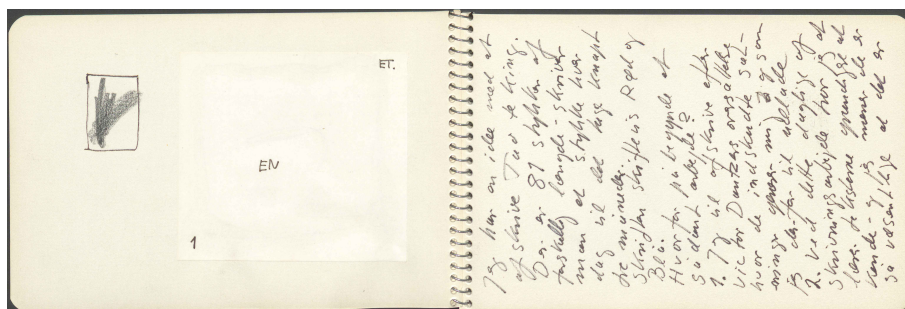 ET.
EN
1
Jeg har en idee med at
afskrive Tao te king.
Der er 81 stykker af
forskellig længde - skriver
man et stykke hver
dag vil det tage knapt
tre måneder.
Skriften skiftevis Rød og
Blå.
Hvorfor påbegynde et
sådant arbejde?
1. Jeg vil afskrive efter
Victor Dantzers oversættelse
hvor de indskudte sæt-
ninger generer mig og som
jeg derfor vil udelade
2. Ved dette daglige af
skrivningsarbejde tror jeg at
lære teksterne grundigt at
kende - og jeg mener de er
så væsentlige at det er